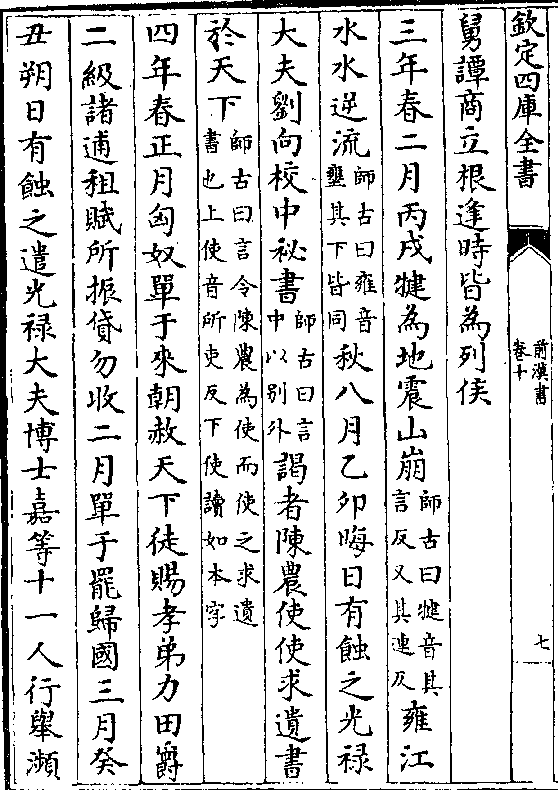 欽定四庫全書
前漢書
卷十
七
舅譚商立根逢時皆為列侯
三年春二月丙戌犍為地震山崩師古曰犍音其
言反又其連反雍江
水水逆流師古曰雍音
壅其下皆同秋八月乙卯晦日有蝕之光禄
大夫劉向校中祕書師古曰言
中以别外謁者陳農使使求遺書
於天下師古曰言令陳農為使而使之求遺
書也上使音所吏反下使讀如本字
四年春正月匈奴單于來朝赦天下徒賜孝弟力田爵
二級諸逋租賦所振貸勿收二月單于罷歸國三月癸
丑朔日有蝕之遣光禄大夫博士嘉等十一人行舉瀕